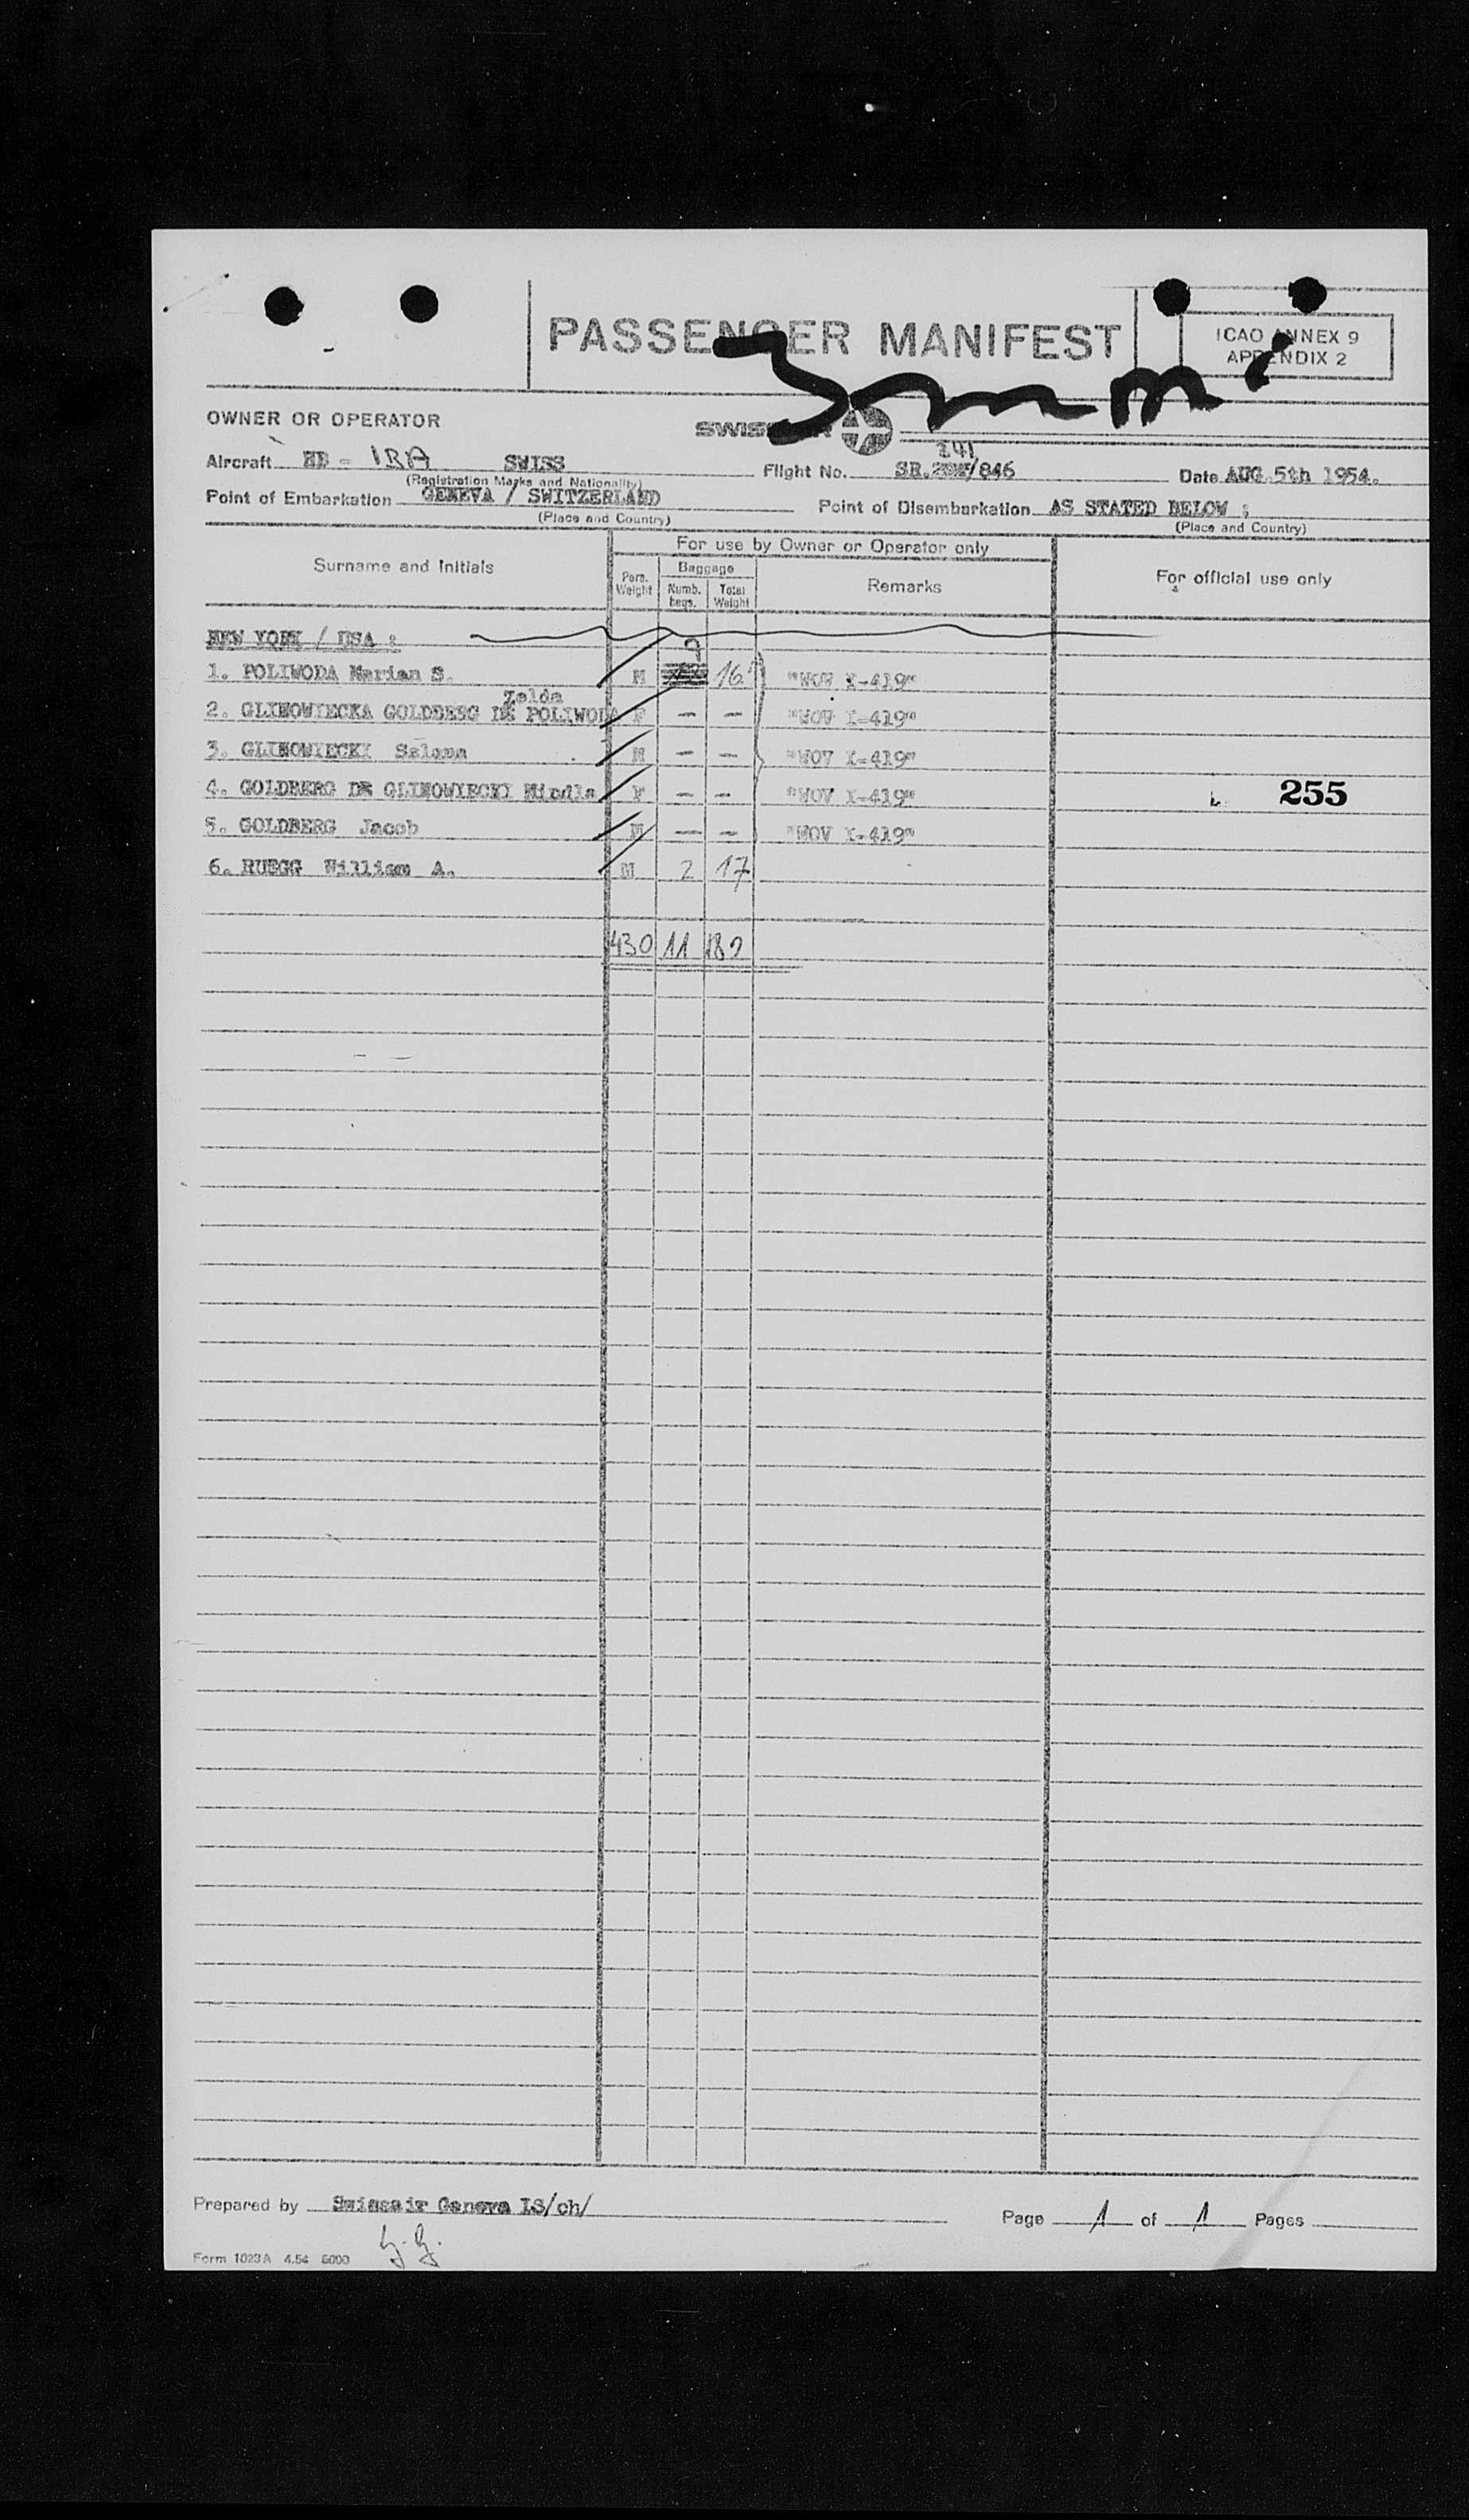 PASSENGER MANIFEST
ICAO ANNEX 9
APPENDIX 2
OWNER OR OPERATOR
SWISSAIR
241
Aircraft HB - IRA SWISS Flight No. SR. /846 Date AUG. 5th 1954.
(Registration Marks and Nationality)
Point of Embarkation GENEVA / SWITZERLAND Point of Disembarkation AS STATED BELOW :
(Place and Country) (Place and Country)
For use by Owner or Operator only
Surname and Initials Pers. Weight Baggage Numb. bags. Total Weight Remarks For official use only
NEW YORK / USA :
9
1. POLIWODA Marian S. M "WOV X-419"
Zelda
2. GLINOWIECKA GOLDBERG DE POLIWODA F — — "WOV X-419"
3. GLINOWIECKI M — — "WOV X-419"
4. GOLDBERG DE GLINOWIECKI F — — "WOV X-419" 255
5. GOLDBERG Jacob M — — "WOV X-419"
6. RUEGG William A. M 2 17
430 11
Prepared by Swissair Geneva LS/ch/
Page 1 of 1 Pages
Form 1023A 4.54 5000